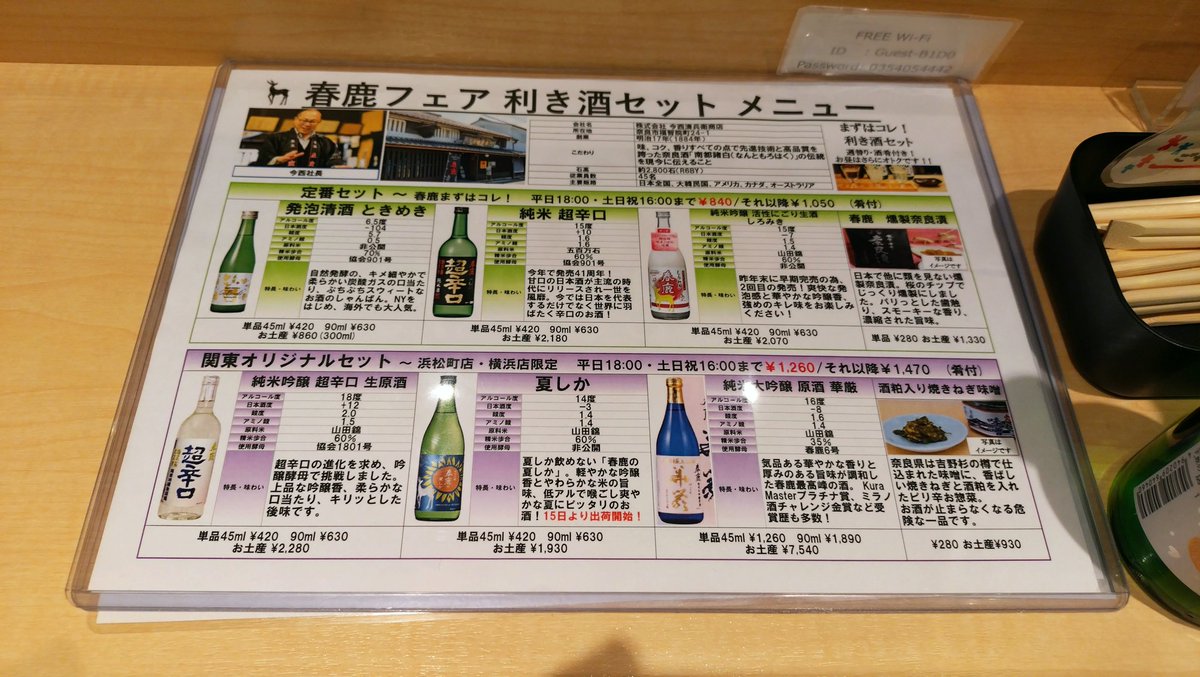 FREE Wi-Fi
ID : Guest-B1D0
Password: 0354054442
春鹿フェア 利き酒セット メニュー
今西社長
会社名 株式会社 今西清兵衛商店
所在地 奈良市福智院町24-1
創業 明治17年(1884年)
こだわり 味、コク、香りすべての点で先進技術と高品質を
誇った奈良酒「南都諸白(なんともろはく)」の伝統
を現今に伝えること
石高 約2,800石(R6BY)
従業員数 45名
主要販路 日本全国、大韓民国、アメリカ、カナダ、オーストラリア
まずはコレ!
利き酒セット
酒肴付き!
お昼はさらにオトクです!!
定番セット ~ 春鹿まずはコレ! 平日18:00・土日祝16:00まで¥840/それ以降¥1,050 (肴付)
発泡清酒 ときめき
アルコール度 6.5度
日本酒度 -104
酸度 5.7
アミノ酸 0.5
原料米 非公開
精米歩合 70%
使用酵母 協会901号
特長・味わい
自然発酵の、キメ細やかで
柔らかい炭酸ガスの口当た
り、ぷちぷちスウィートな
お酒のしゃんぱん。NYを
はじめ、海外でも大人気。
単品45ml ¥420 90ml ¥630
お土産 ¥860 (300ml)
純米 超辛口
アルコール度 15度
日本酒度 +10
酸度 1.6
アミノ酸 1.6
原料米 五百万石
精米歩合 60%
使用酵母 協会901号
特長・味わい
今年で発売41周年!
甘口の日本酒が主流の時
代にリリースされ一世を
風靡。今では日本を代表
するだけでなく世界に羽
ばたく辛口のお酒!
単品45ml ¥420 90ml ¥630
お土産 ¥2,180
純米吟醸 活性にごり生酒
しろみき
アルコール度 15度
日本酒度 -7
酸度 1.5
アミノ酸 1.4
原料米 山田錦
精米歩合 60%
使用酵母 非公開
特長・味わい
昨年末に早期完売の為、
2回目の発売!爽快な発
泡感と華やかな吟醸香、
強めのキレ味をお楽しみ
ください!
単品45ml ¥420 90ml ¥630
お土産 ¥2,070
春鹿 燻製奈良漬
写真は
イメージです
日本で他に類を見ない燻
製奈良漬。桜のチップで
じっくり燻製にしまし
た。パリッとした歯触
り、スモーキーな香り、
濃縮された旨味。
単品 ¥280 お土産 ¥1,330
関東オリジナルセット ~ 浜松町店・横浜店限定 平日18:00・土日祝16:00まで¥1,260/それ以降¥1,470 (肴付)
純米吟醸 超辛口 生原酒
アルコール度 18度
日本酒度 +12
酸度 2.0
アミノ酸 1.5
原料米 山田錦
精米歩合 60%
使用酵母 協会1801号
特長・味わい
超辛口の進化を求め、吟
醸酵母で挑戦しました。
上品な吟醸香、柔らかな
口当たり、キリッとした
後味です。
単品45ml ¥420 90ml ¥630
お土産 ¥2,280
夏しか
アルコール度 14度
日本酒度 -3
酸度 1.4
アミノ酸 1.4
原料米 山田錦
精米歩合 60%
使用酵母 非公開
特長・味わい
夏しか飲めない「春鹿の
夏しか」。軽やかな吟醸
香とやわらかな米の旨
味、低アルで喉ごし爽や
かな夏にピッタリのお
酒!15日より出荷開始!
単品45ml ¥420 90ml ¥630
お土産 ¥1,930
純米大吟醸 原酒 華厳
アルコール度 16度
日本酒度 -8
酸度 1.6
アミノ酸 1.4
原料米 山田錦
精米歩合 35%
使用酵母 春鹿6号
特長・味わい
気品ある華やかな香りと
厚みのある旨味が調和し
た春鹿最高峰の酒。Kura
Masterプラチナ賞、ミラノ
酒チャレンジ金賞など受
賞歴も多数!
単品45ml ¥1,260 90ml ¥1,890
お土産 ¥7,540
酒粕入り焼きねぎ味噌
写真は
イメージです
奈良県は吉野杉の樽で仕
込まれた味噌に、香ばし
い焼きねぎと酒粕を入れ
たピリ辛お惣菜。
お酒が止まらなくなる危
険な一品です。
¥280 お土産¥930